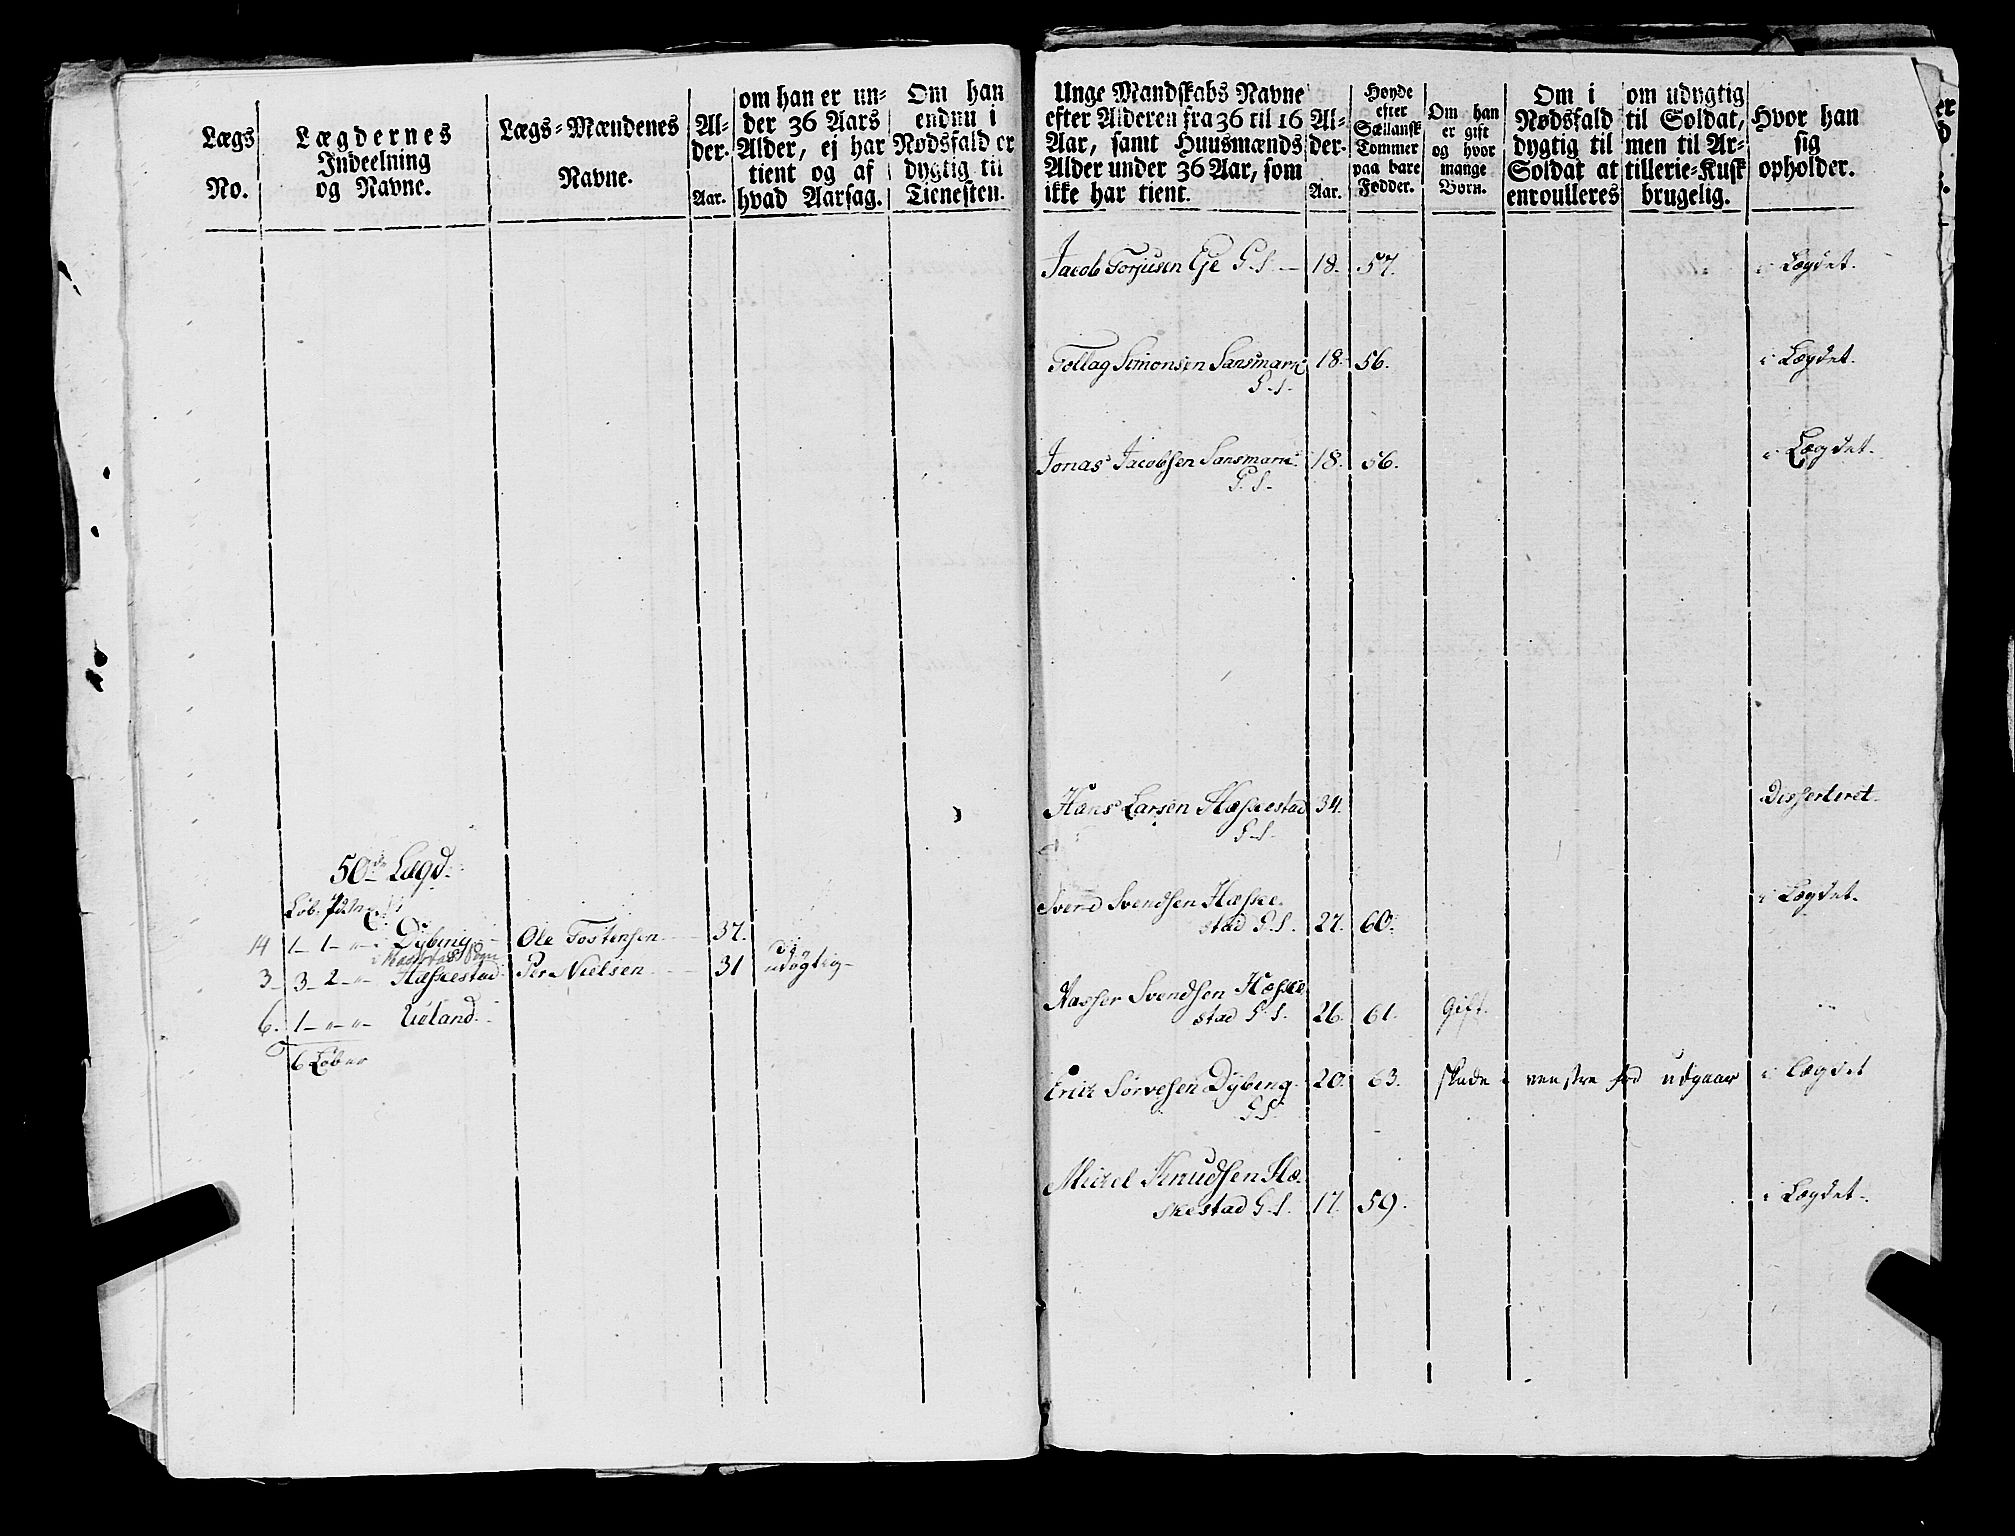 Lægs
No.
Lægdernes
Indeelning
og Navne.
Lægs-Mændenes
Navne.
Al-
der.
Aar.
om han er un-
der 36 Aars
Alder, ej har
tient og af
hvad Aarsag.
Om han
endnu i
Nødsfald er
dygtig til
Tienesten.
50de Lægd.
Løb.
14 1 - 1 - " - Dybing - Ole Tostensen 37.
3 - 3 - 2 - " - Hæskestad Per Nielsen 31 udygtig -
6. 1 - " - " - Ueland.
6 Løber
Unge Mandskabs Navne
efter Alderen fra 36 til 16
Aar, samt Huusmænds
Alder under 36 Aar, som
ikke har tient.
Al-
der.
Aar.
Høyde
efter
Sællansk
Tommer
paa bare
Fødder.
Om han
er gift
og hvor
mange
Børn.
Om i
Nødsfald
dygtig til
Soldat at
enroulleres
om udygtig
til Soldat,
men til Ar-
tillerie-Kusk
brugelig.
Hvor han
sig
opholder.
Jacob Torjusen Eje G. S. - 18. 57. i Lægdet.
Tollag Simonsen Sansmark 18. 56. i Lægdet.
G. S.
Jonas Jacobsen Sansmark 18. 56. i Lægdet.
G. S.
Hans Larsen Hæskestad 34. Disserteret.
G. S.
Svend Svendsen Hæske-
stad G. S. 27. 60. i Lægdet.
Aasser Svendsen Hæske
stad G. S. 26. 61. Gift. "
Erik Sørvesen Dybing 20. 63. skade i venstre fod udgaar i Lægdet
G. S.
Mickel Knudsen Hæ-
skestad G. S. 17. 59. i Lægdet.